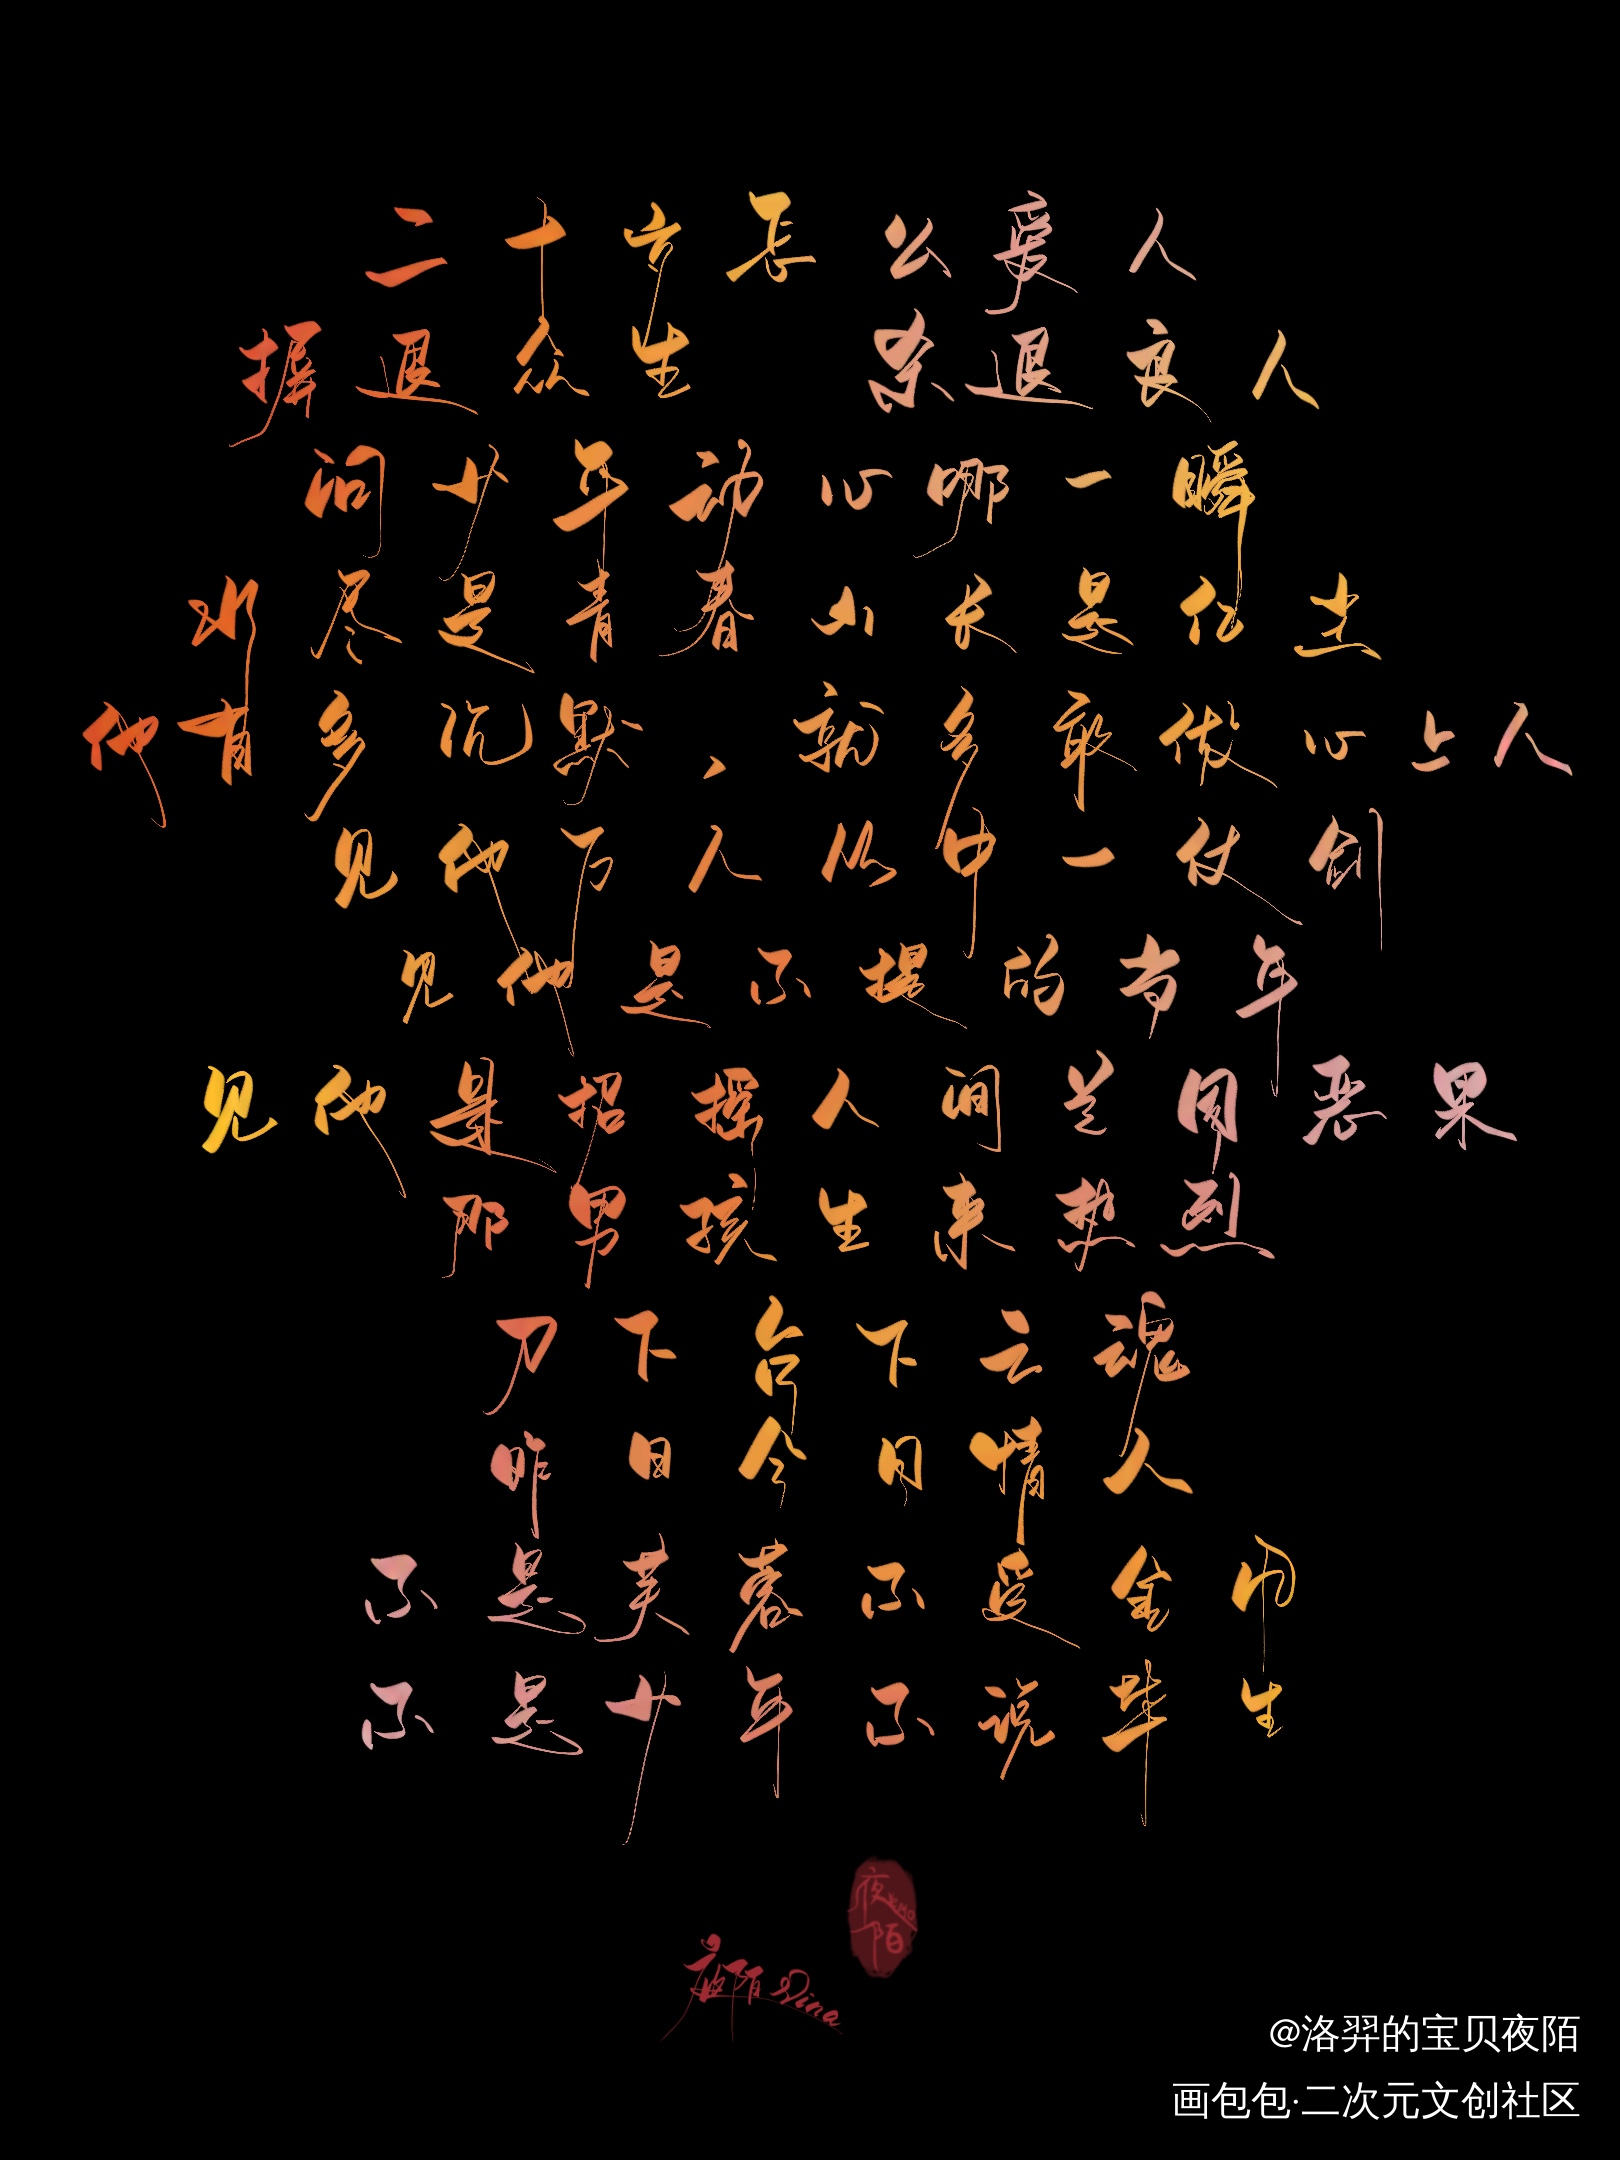 二十岁怎么爱人
摒退众生 杀退良人
问少年动心哪一瞬
水尽是青春山长是红尘
他有多沉默、就多敢做心上人
见他万人从中一仗剑
见他是不提的当年
见他是招摇人间兰因恶果
那男孩生来热烈
刀下台下云魂
昨日今日情人
不是芙蓉不爱金巾
不是少年不说毕生
夜陌
夜陌 Dina
@洛羿的宝贝夜陌
画包包·二次元文创社区